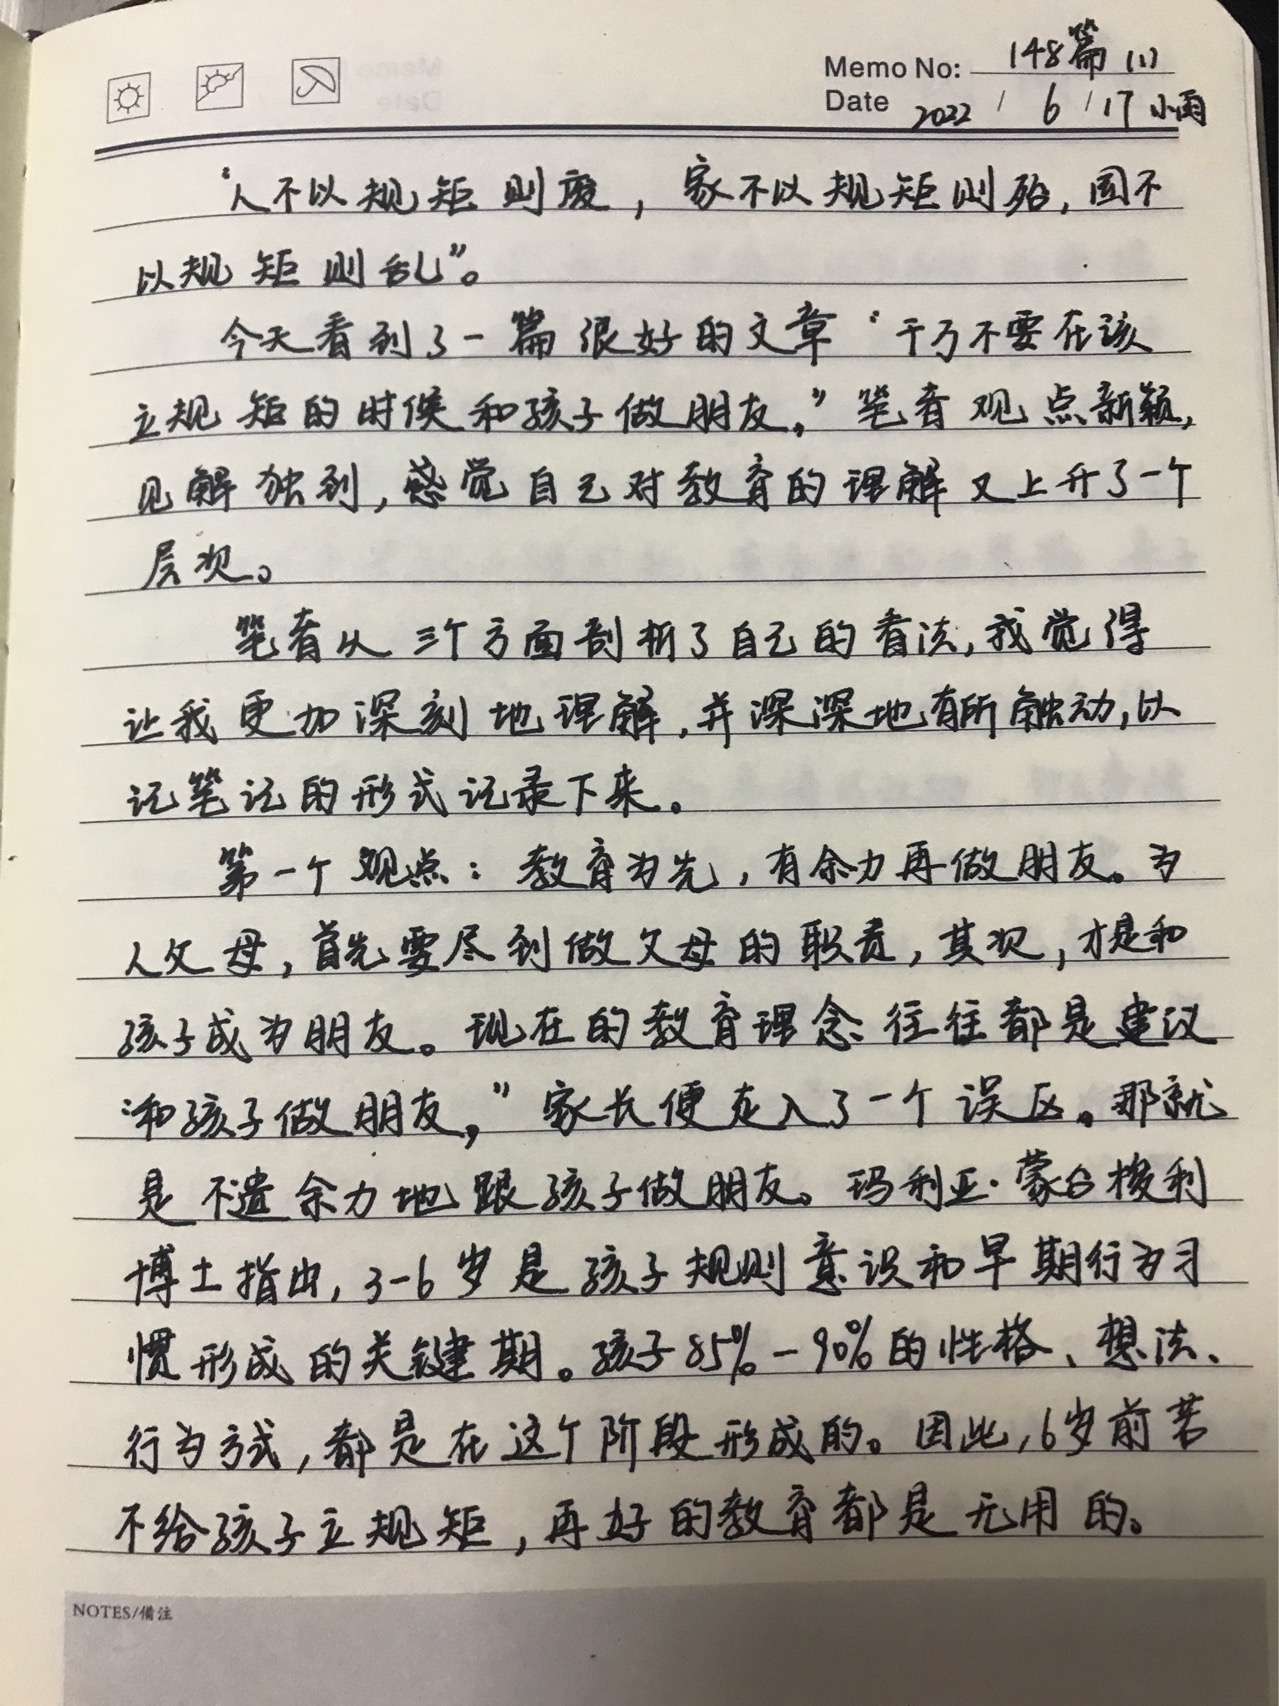 Memo No: 148篇(1)
Date 2022 / 6 / 17 小雨
“人不以规矩则废，家不以规矩则殆，国不
以规矩则乱”。
今天看到了一篇很好的文章“千万不要在该
立规矩的时候和孩子做朋友。”笔者观点新颖，
见解独到，感觉自己对教育的理解又上升了一个
层次。
笔者从三个方面剖析了自己的看法，我觉得
让我更加深刻地理解，并深深地有所触动，以
记笔记的形式记录下来。
第一个观点：教育为先，有余力再做朋友。为
人父母，首先要尽到做父母的职责，其次，才是和
孩子成为朋友。现在的教育理念往往都是建议
“和孩子做朋友，”家长便走入了一个误区。那就
是不遗余力地跟孩子做朋友。玛利亚·蒙台梭利
博士指出，3-6岁是孩子规则意识和早期行为习
惯形成的关键期。孩子85%-90%的性格、想法、
行为方式，都是在这个阶段形成的。因此，6岁前若
不给孩子立规矩，再好的教育都是无用的。
NOTES/備注